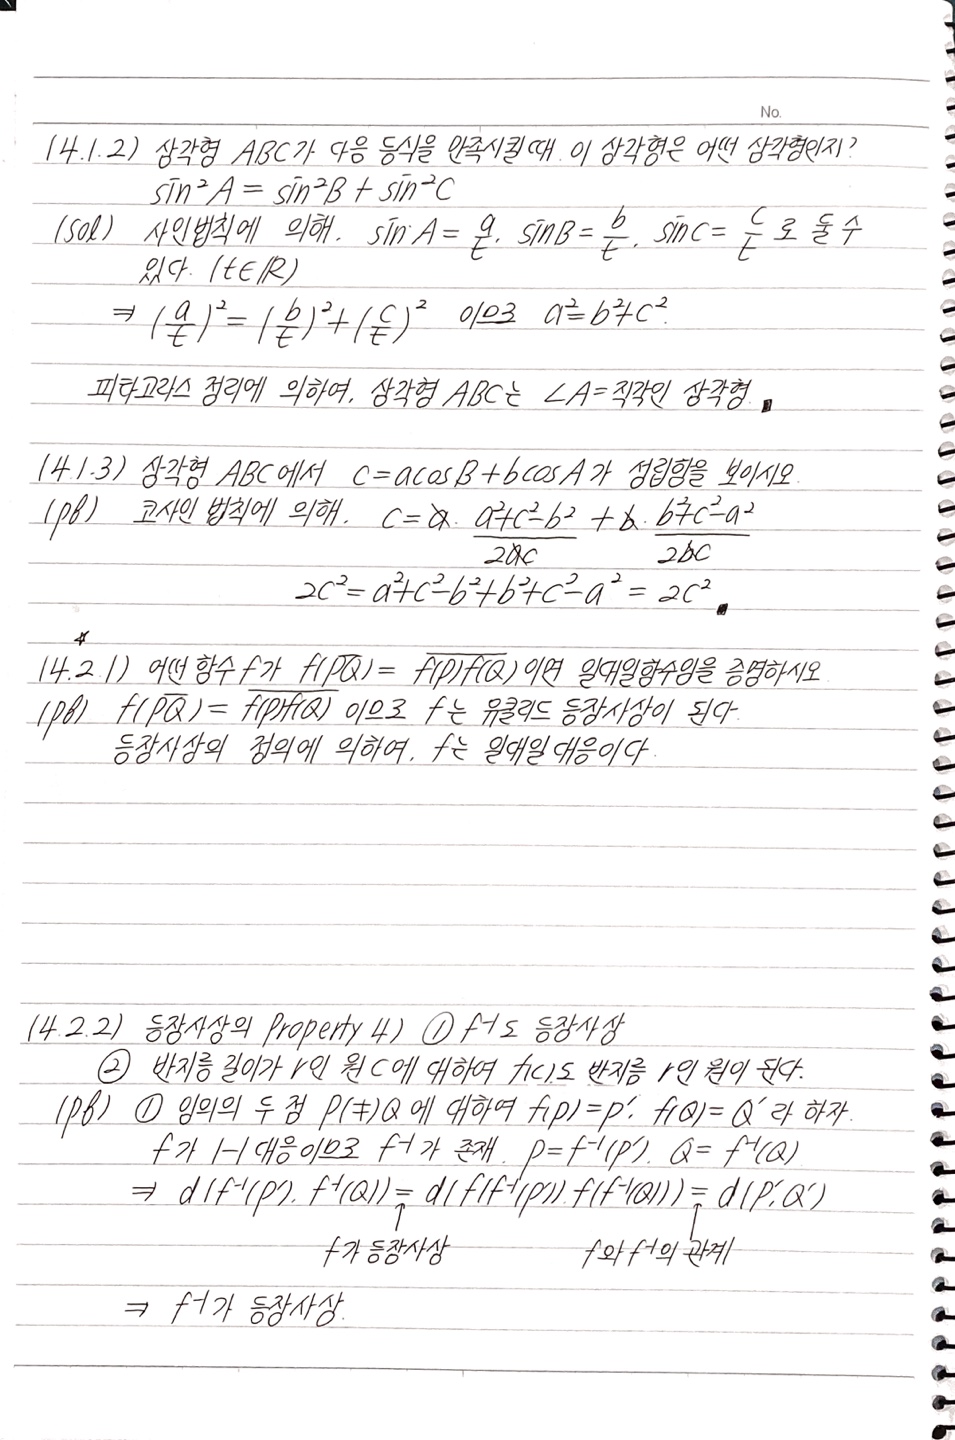 No.
(4.1.2) 삼각형 ABC가 다음 등식을 만족시킬 때, 이 삼각형은 어떤 삼각형인지?
sin²A = sin²B + sin²C
(sol) 사인법칙에 의해, sinA = a/t, sinB = b/t, sinC = c/t 로 둘 수
있다. (t∈ℝ)
⇒ (a/t)² = (b/t)² + (c/t)² 이므로 a²=b²+c².
피타고라스 정리에 의하여, 삼각형 ABC는 ∠A=직각인 삼각형.
(4.1.3) 삼각형 ABC에서 c=acosB+bcosA가 성립함을 보이시오.
(pf) 코사인 법칙에 의해, c = a· (a²+c²-b²)/2ac + b· (b²+c²-a²)/2bc
2c² = a²+c²-b²+b²+c²-a² = 2c².
☆
(4.2.1) 어떤 함수 f가 f(P̅Q̅) = f̅(̅P̅)̅f̅(̅Q̅)̅ 이면 일대일함수임을 증명하시오.
(pf) f(P̅Q̅) = f̅(̅P̅)̅f̅(̅Q̅)̅ 이므로 f는 유클리드 등장사상이 된다.
등장사상의 정의에 의하여, f는 일대일 대응이다.
(4.2.2) 등장사상의 Property 4) ① f⁻¹도 등장사상
② 반지름 길이가 r인 원 C에 대하여 f(C)도 반지름 r인 원이 된다.
(pf) ① 임의의 두 점 P(≠)Q에 대하여 f(P)=P′, f(Q)=Q′라 하자.
f가 1-1 대응이므로 f⁻¹가 존재. P=f⁻¹(P′), Q=f⁻¹(Q)
⇒ d(f⁻¹(P′), f⁻¹(Q′)) = d(f(f⁻¹(P′)), f(f⁻¹(Q′))) = d(P′,Q′)
f가 등장사상 f와 f⁻¹의 관계
⇒ f⁻¹가 등장사상.